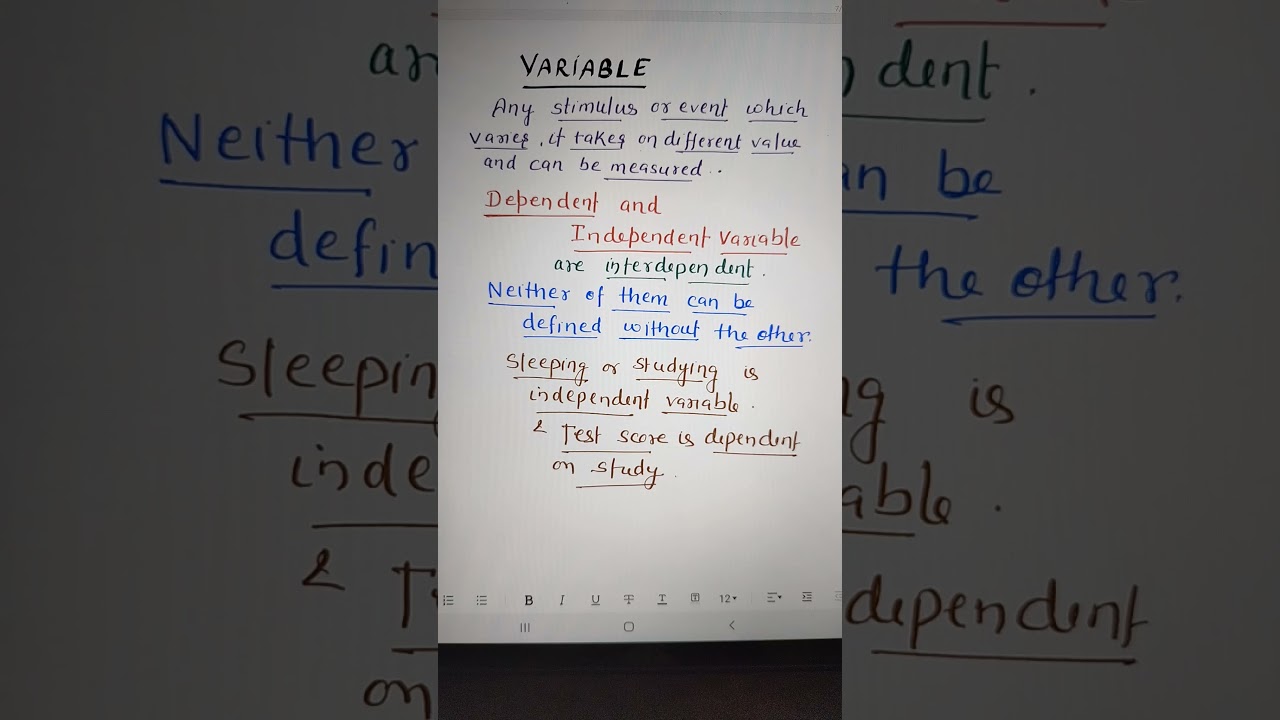 VARIABLE
Any stimulus or event which
varies, it takes on different value
and can be measured.
Dependent and
Independent Variable
are interdependent.
Neither of them can be
defined without the other.
Sleeping or studying is
independent variable.
& Test score is dependent
on study.
B I U T T T 12